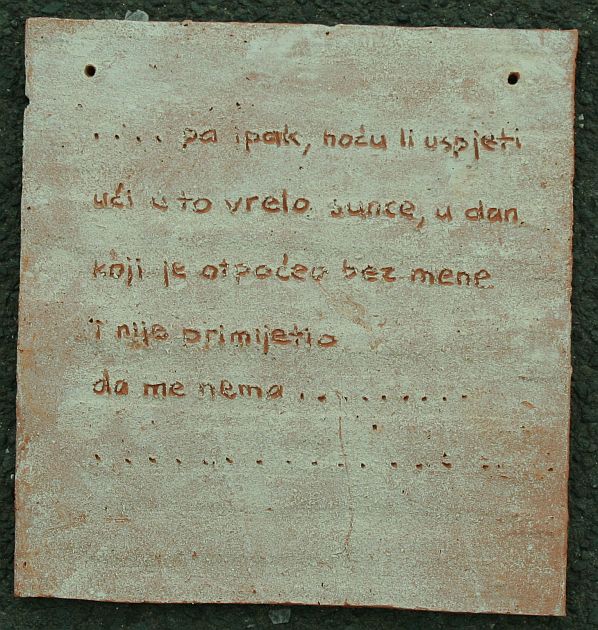 . . . . pa ipak, hoću li uspjeti
ući u to vrelo sunce, u dan.
koji je otpočeo bez mene
i nije primijetio
da me nema . . . . . . . . .
. . . . . . . . . . . . . . . . .